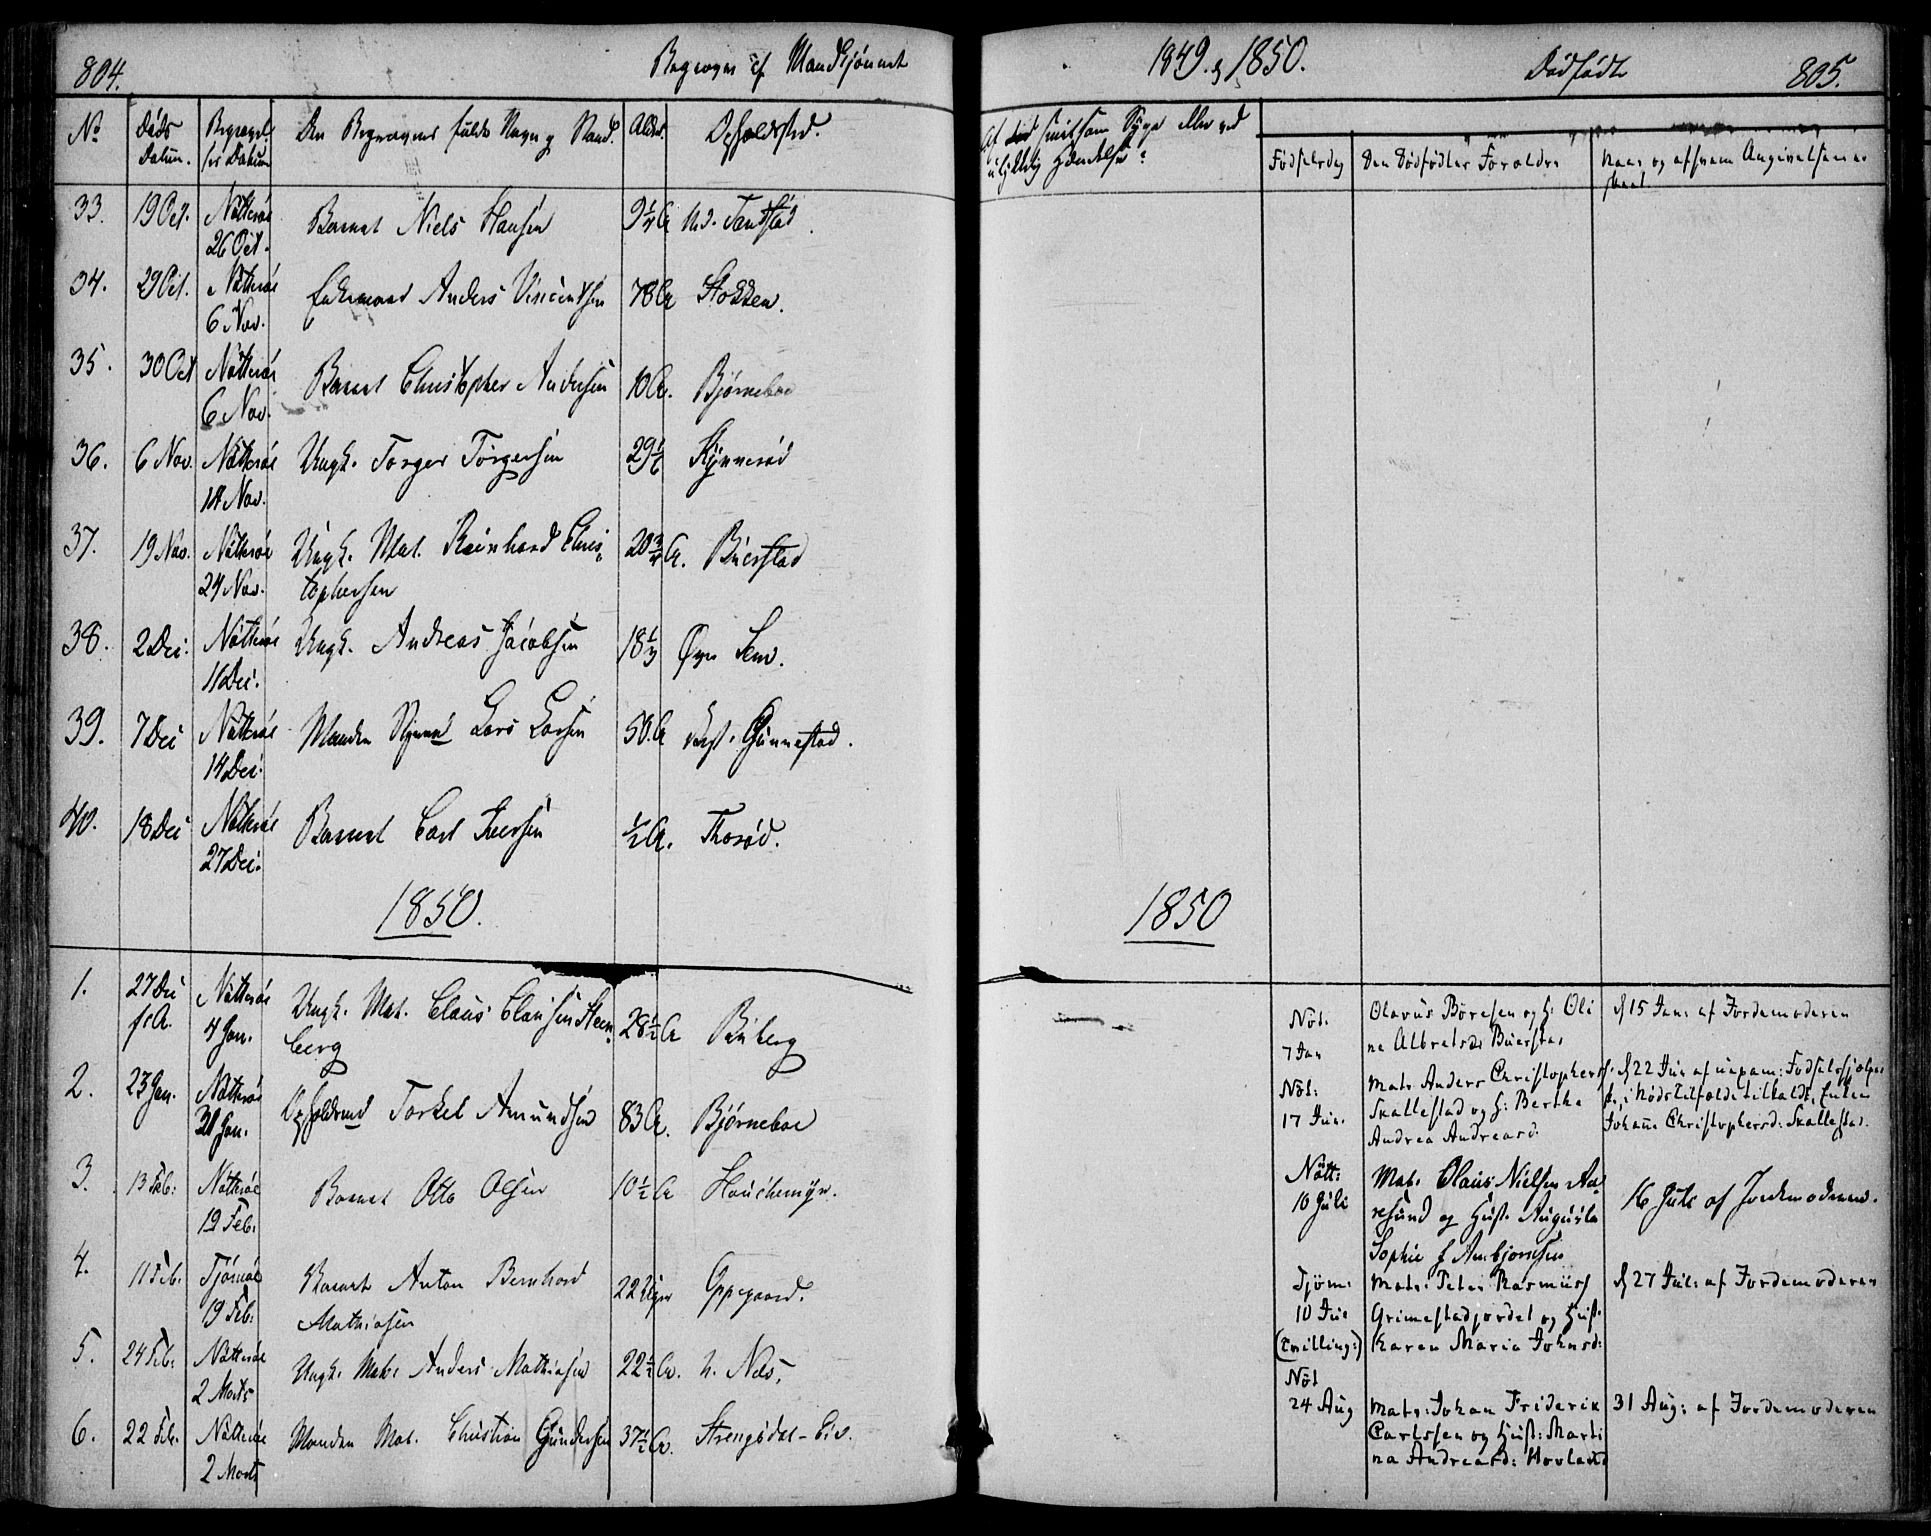 804.
Begravne af Mandkjønnet
No Døds Datum. Begravelses Datum Den Begravnes fulde Navn og Stand. Alder. Opholdsted.
33. 19 Oct. Nøtterøe 26 Oct. Barnet Niels Hansen 9 1/4 A Nd.
34. 29 Oct. Nøtterøe 6 Nov. Enkemand Anders Vincentsen 78 A Stokken.
35. 30 Oct Nøtterøe 6 Nov. Barnet Christopher Andersen 10 A. Bjørneboe
36. 6 Nov. Nøtterøe 14 Nov. Ungk. Torger Torgersen 29 1/6 Kynnerød
37. 19 Nov. Nøtterøe 24 Nov. Ungk. Mat. Reinhard Chris-
tophersen 20 3/4 A. Buerstad
38. 2 Dec. Nøtterøe 11 Dec. Ungk. Andreas Jacobsen 18 1/3 Øvre Sem.
39. 7 Dec Nøtterøe 14 Dec. Manden Lars Larsen 50 A Vest. Gunnestad.
40. 18 Dec Nøtterøe 27 Dec. Barnet Carl Iversen 1/2 A. Thorød.
1850.
1. 27 Dec f. A. Nøtterøe 4 Jan. Ungk. Mat. Claus Clausen Steen-
berg 28 1/2 A Buberg
2. 23 Jan. Nøtterøe 31 Jan. Opholdsmd Torkel Amundsen 83 A. Bjørneboe
3. 13 Feb. Nøtterøe 19 Feb. Barnet Otto Olsen 10 1/2 A Houchemyr.
4. 11 Feb. Tjømøe 19 Feb. Barnet Anton Bernhard
Mathiasen 22 Uger Oppegaard.
5. 24 Feb. Nøtterøe 2 Marts Ungk. Mat. Anders Mathiasen 22 1/2 A. N. Nes.
6. 22 Feb. Nøtterøe 2 Marts Manden Mat. Christian Gundersen 37 1/2 A. Strengsdal-Eie.
1849. & 1850.
Dødfødte 805.
Af smitsom Syge eller ved
ulykkelig Hændelse?
Fødselsdag Den Dødfødtes Forældre Naar og af hvem Angivelsen er
skeet
1850
Nøt. 7 Jan Olavus Børesen og H: Oli
ne Albretsd: Buerstad d 15 Jan: af Jordemoderen
Nøt: 17 Mat. Anders Christophers.
Skallestad og H: Berthe
Andrea Andreasd: d 22 af
i Nødstilfælde tilkaldt, Enken
Johanne Christophersd: Skallestad.
Nøtt: 10 Juli Mat. Claus Nielsen Aa-
røsund og Hust. Augusta
Sophie f Ambjornsen 16 Juli af Jordemoderen.
Tjøm: 10 (Tvilling:) Mat: Peter Rasmuss
Grimestadjordet og Hust.
Karen Maria Johnsd: d 27 af Jordemoderen
Nøt 24 Aug Mat: Johan Friderik
Carlssen og Hust: Marti
na Andreasd: Hovland 31 Aug: af Jordemoderen